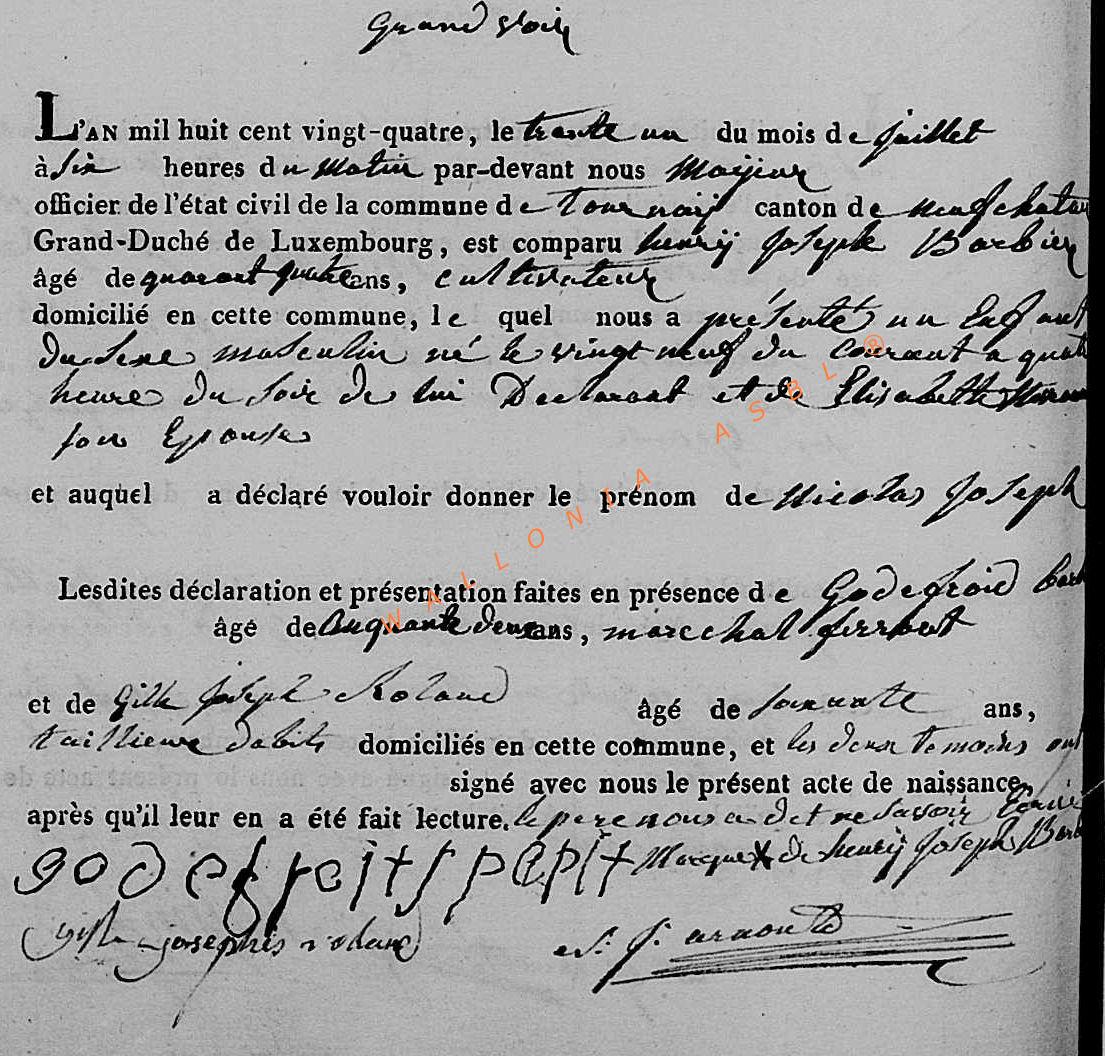 Grandvoir
L'AN mil huit cent vingt-quatre, le trente un du mois de juillet
à Six heures du Matin par-devant nous Mayeur
officier de l'état civil de la commune de Tournay canton de neufchateau
Grand-Duché de Luxembourg, est comparu henrij Joseph Barbier
âgé de quarant quatre ans, cultivateur
domicilié en cette commune, le quel nous a présenté un Enfant
du Sexe masculin né le vingt neuf du courant a quatre
heure du Soir de lui Declarant et de Elisabette
son Epouse
et auquel a déclaré vouloir donner le prénom de Nicolas Joseph
Lesdites déclaration et présentation faites en présence de Godefroid
âgé de Cinquante deux ans, marechal ferrant
et de Gille Joseph Roland âgé de Soixante ans,
taillieure dabits domiciliés en cette commune, et les deux temoins ont
signé avec nous le présent acte de naissance,
après qu'il leur en a été fait lecture. le pere nous a dit ne Savoir Ecrire
Marque X de henrij Joseph Barb
josephis roland
J. arnould
WALLONIA ASBL ®